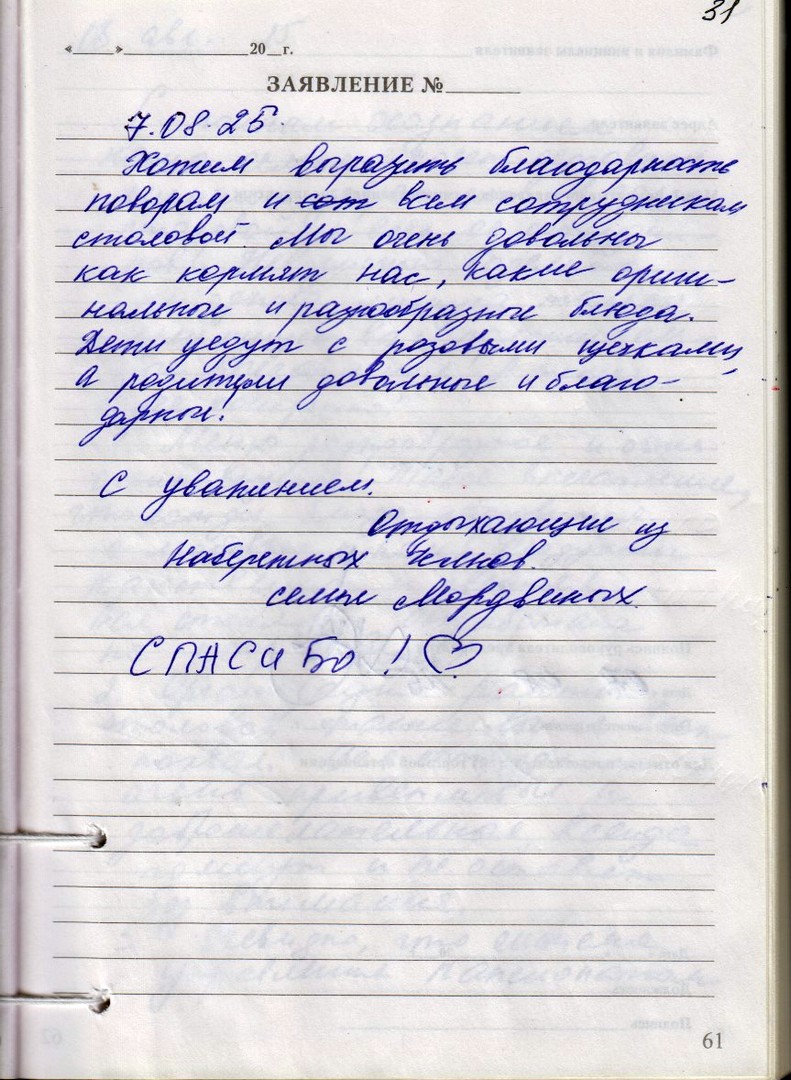 31
«____»____________20__г.
ЗАЯВЛЕНИЕ №______
7.08.25.
Хотим выразить благодарность
поворам и сот всем сотрудникам
столовой Мы очень довольны
как кормят нас, какие ориги-
нальные и разнообразные блюда.
Дети уедут с розовыми щечками,
а родители довольные и благо-
дарные.
С уважением.
Отдыхающие из
Набережных Челнов.
семья Мордвиных.
СПАСИБО !♡
61